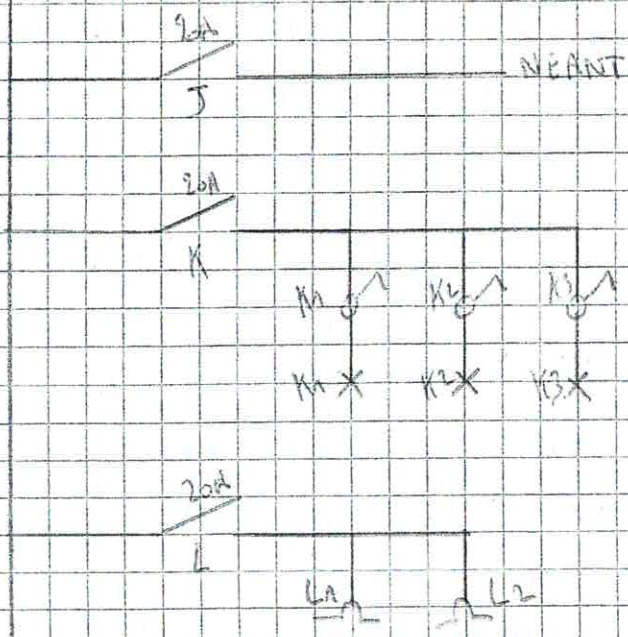 20A
J NEANT
20A
K
K1 K2 K3
K1 K2 K3
20A
L
L1 L2